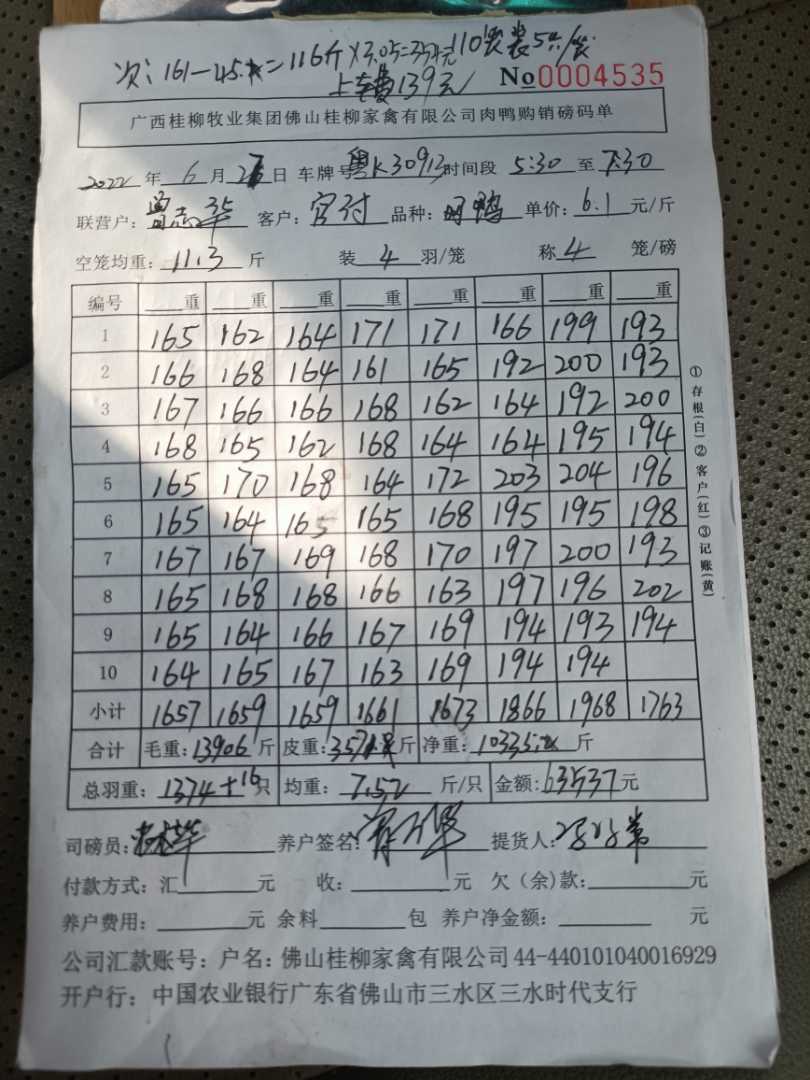 次: 161-45斤=116斤×3.05=354元 110袋装5只/袋
上车费139元
No0004535
广西桂柳牧业集团佛山桂柳家禽有限公司肉鸭购销磅码单
2022年6月27日 车牌号粤K30913时间段 5:30 至 7:30
联营户:曾志华 客户: 官付 品种: 肉鸭 单价: 6.1 元/斤
空笼均重: 11.3 斤 装 4 羽/笼 称 4 笼/磅
编号 重 重 重 重 重 重 重 重
1 165 162 164 171 171 166 199 193
2 166 168 164 161 165 192 200 193
3 167 166 166 168 162 164 192 200
4 168 165 162 168 164 164 195 194
5 165 170 168 164 172 203 204 196
6 165 164 165 165 168 195 195 198
7 167 167 169 168 170 197 200 193
8 165 168 168 166 163 197 196 202
9 165 164 166 167 169 194 193 194
10 164 165 167 163 169 194 194
小计 1657 1659 1659 1661 1673 1866 1968 1763
合计 毛重: 13906 斤 皮重: 斤 净重: 斤
总羽重: 1374+16 只 均重: 7.52 斤/只 金额: 63537 元
司磅员: 养户签名: 提货人:
付款方式: 汇 元 收: 元 欠(余)款: 元
养户费用: 元 余料 包 养户净金额: 元
公司汇款账号: 户名: 佛山桂柳家禽有限公司 44-440101040016929
开户行: 中国农业银行广东省佛山市三水区三水时代支行
①存根(白)②客户(红)③记账(黄)